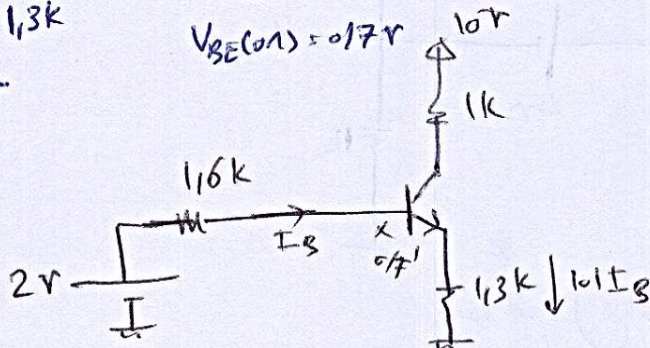 1,3k
V_BE(on) = 0,7 V
10V
1k
1,6k
I_B
0,7
2V
1,3k ↓ 101 I_B